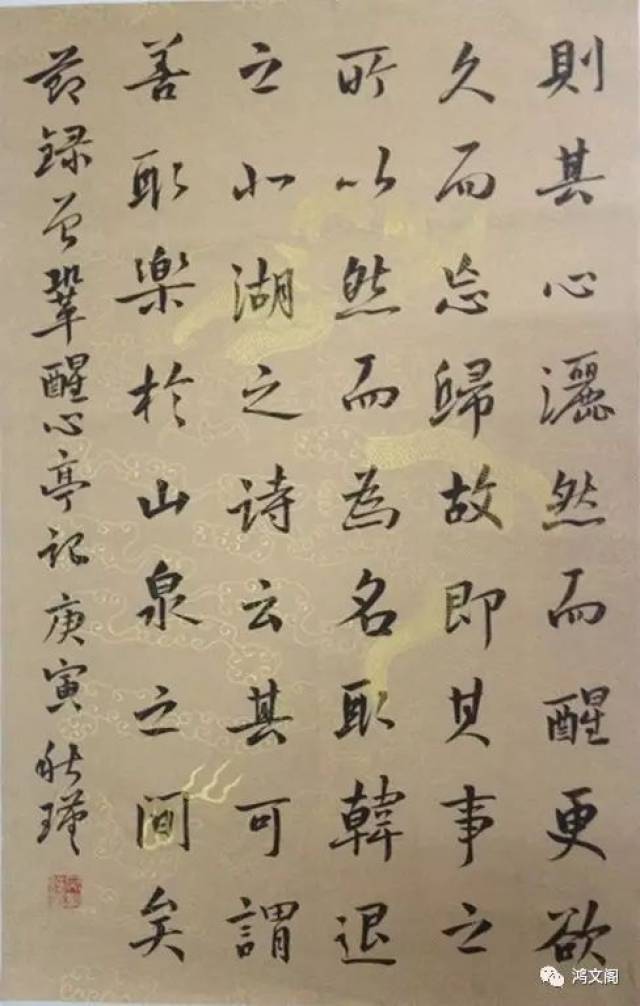 則其心灑然而醒更欲
久而忘歸故即其事之
所以然而為名取韓退
之北湖之诗云其可謂
善取樂於山泉之间矣
節録曾鞏醒心亭记庚寅秋瑾
鸿文阁